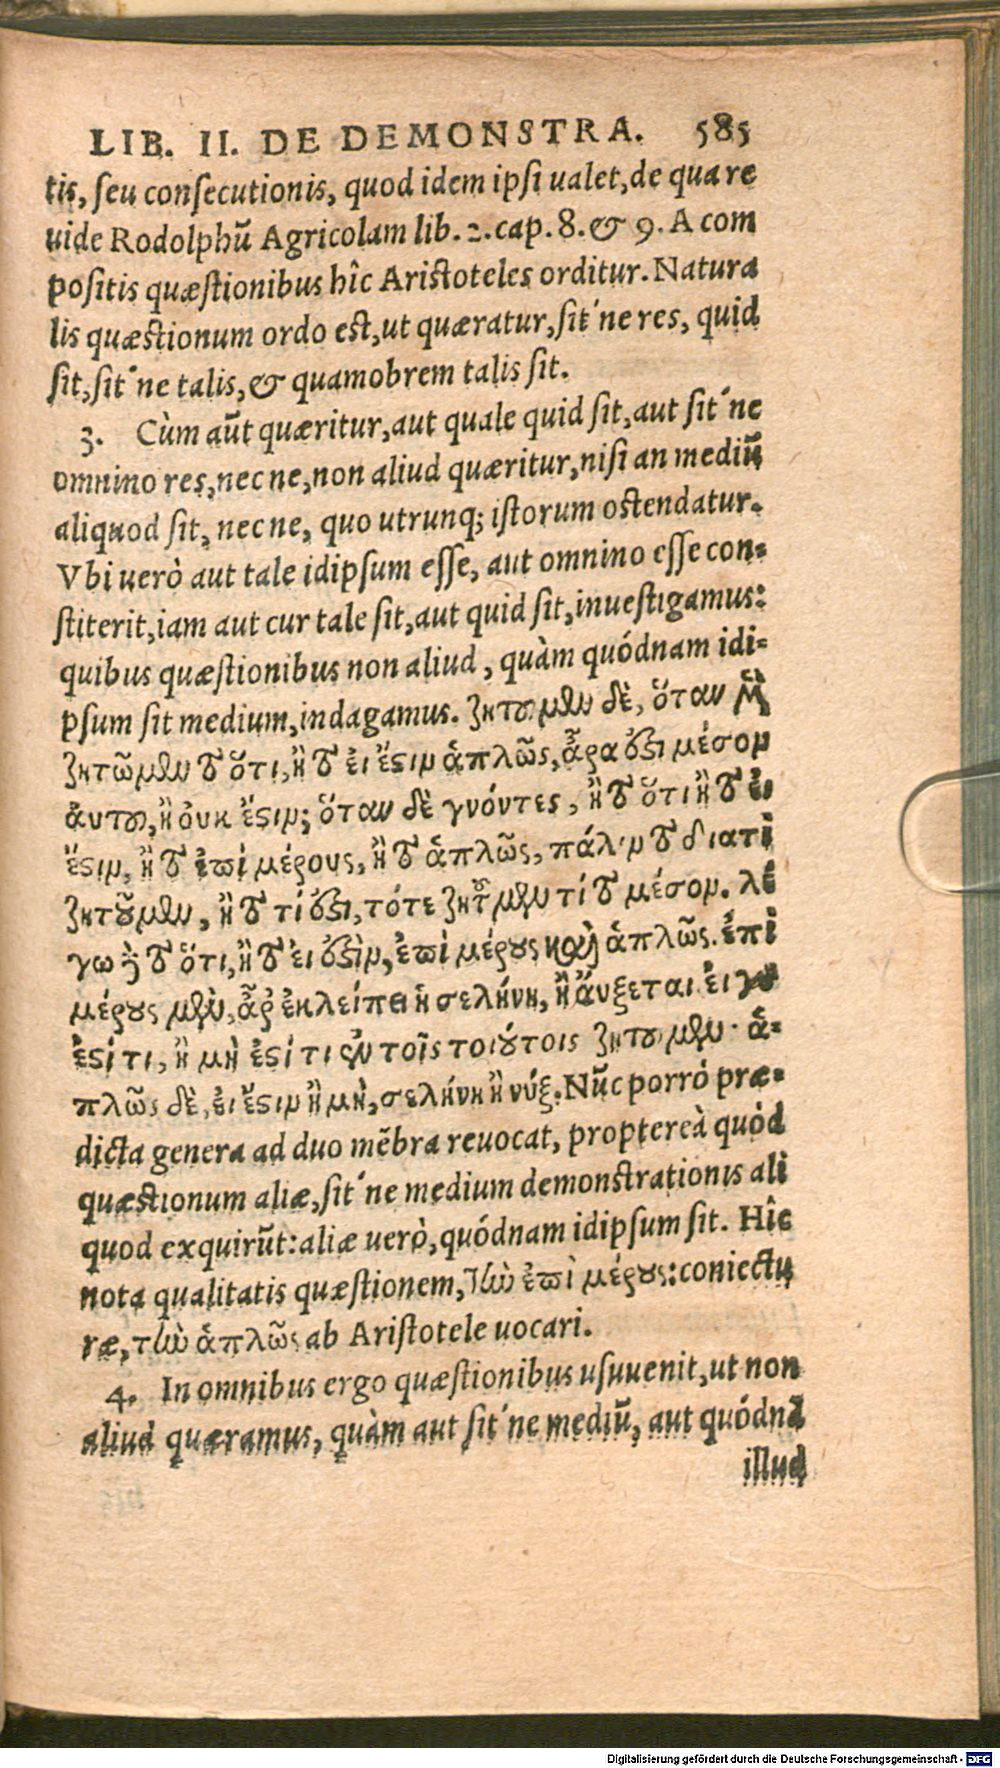 LIB. II. DE DEMONSTRA. 585
tis, seu consecutionis, quod idem ipsi ualet, de qua re
uide Rodolphū Agricolam lib. 2. cap. 8. & 9. A com
positis quæstionibus hîc Aristoteles orditur. Natura
lis quæstionum ordo est, ut quæratur, sit´ne res, quid
sit, sit´ne talis, & quamobrem talis sit.
3. Cùm aūt quæritur, aut quale quid sit, aut sit´ne
omnino res, nec ne, non aliud quæritur, nisi an mediū
aliquod sit, nec ne, quo utrunq; istorum ostendatur.
Vbi uerò aut tale idipsum esse, aut omnino esse con-
stiterit, iam aut cur tale sit, aut quid sit, inuestigamus:
quibus quæstionibus non aliud, quàm quódnam idi-
psum sit medium, indagamus. ζητοῦμεν δὲ, ὅταν μὲν
ζητῶμεν τὸ ὅτι, ἢ τὸ εἰ ἔστιν ἁπλῶς, ἆρα ἔστι μέσον
ἀυτοῦ, ἢ οὐκ ἔστιν; ὅταν δὲ γνόντες, ἢ τὸ ὅτι ἢ τὸ εἰ
ἔστιν, ἢ τὸ ἐπὶ μέρους, ἢ τὸ ἁπλῶς, πάλιν τὸ διατὶ
ζητοῦμεν, ἢ τὸ τί ἐστι, τότε ζητοῦμεν τί τὸ μέσον. λέ
γω δὲ τὸ ὅτι, ἢ τὸ εἰ ἐστὶν, ἐπὶ μέρους καὶ ἁπλῶς. ἐπὶ
μέρους μὲν, ἆρ᾽ ἐκλείπει ἡ σελήνη, ἢ ἄυξεται εἰ γὰρ
ἐστί τι, ἢ μὴ ἐστί τι ἐν τοῖς τοιούτοις ζητοῦμεν· ἁ-
πλῶς δὲ, εἰ ἔστιν ἢ μὴ, σελήνη ἢ νύξ. Nūc porró præ-
dicta genera ad duo mēbra reuocat, propterеà quòd
quæstionum aliæ, sit´ne medium demonstrationis ali
quod exquirūt: aliæ uerò, quódnam idipsum sit. Hîc
nota qualitatis quæstionem, τὴν ἐπὶ μέρους: coniectu
ræ, τὴν ἁπλῶς ab Aristotele uocari.
4. In omnibus ergo quæstionibus usuuenit, ut non
aliud quæramus, quàm aut sit´ne mediū, aut quódnā
illud
Digitalisierung gefördert durch die Deutsche Forschungsgemeinschaft - DFG